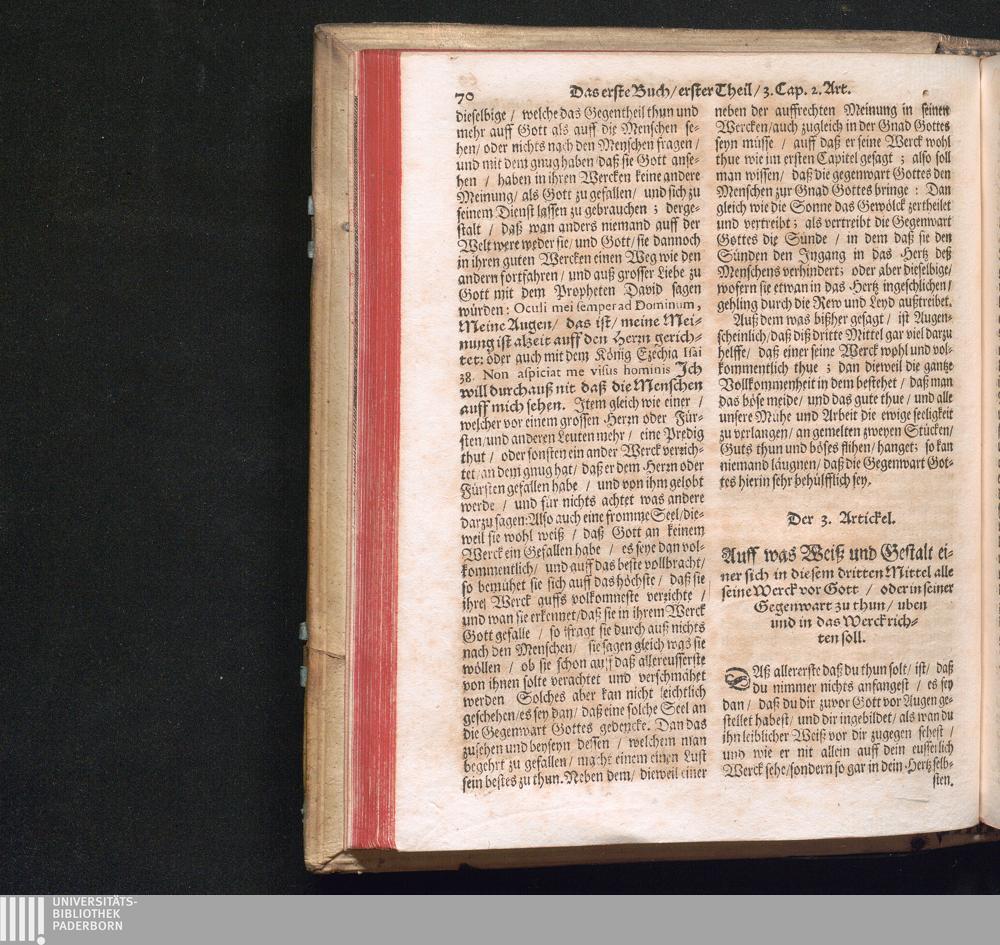 70
Das erste Buch/ erster Theil/ 3. Cap. 2. Art.
dieselbige / welche das Gegentheil thun und
mehr auff Gott als auff die Menschen se-
hen/ oder nichts nach den Menschen fragen/
und mit dem gnug haben daß sie Gott anse-
hen / haben in ihren Wercken keine andere
Meinung/ als Gott zu gefallen/ und sich zu
seinem Dienst lassen zu gebrauchen ; derge-
stalt / daß wan anders niemand auff der
Welt were weder sie/ und Gott/ sie dannoch
in ihren guten Wercken einen Weg wie den
andern fortfahren/ und auß grosser Liebe zu
Gott mit dem Propheten David sagen
würden: Oculi mei semper ad Dominum,
Meine Augen/ das ist/ meine Mei-
nung ist alzeit auff den Herrn gerich-
tet: oder auch mit dem König Ezechia Isai
38. Non aspiciat me visus hominis Ich
will durchauß nit daß die Menschen
auff mich sehen. Item gleich wie einer /
welcher vor einem grossen Herrn oder Für-
sten/ und anderen Leuten mehr / eine Predig
thut / oder sonsten ein ander Werck verrich-
tet/ an dem gnug hat/ daß er dem Herrn oder
Fürsten gefallen habe / und von ihm gelobt
werde / und für nichts achtet was andere
darzu sagen: Also auch eine fromme Seel/ die-
weil sie wohl weiß / daß Gott an keinem
Werck ein Gefallen habe / es seye dan vol-
kommentlich/ und auff das beste vollbracht/
so bemühet sie sich auff das höchste/ daß sie
ihre Werck auffs volkomneste verrichte /
und wan sie erkennet/ daß sie in ihrem Werck
Gott gefalle / so fragt sie durch auß nichts
nach den Menschen/ sie sagen gleich was sie
wöllen / ob sie schon auff daß allereusserste
von ihnen solte verachtet und verschmähet
werden Solches aber kan nicht leichtlich
geschehen/ es sey dan/ daß eine solche Seel an
die Gegenwart Gottes gedencke. Dan das
zusehen und beyseyn dessen / welchem man
begehrt zu gefallen/ macht einem einen Lust
sein bestes zu thun. Neben dem/ dieweil einer
neben der auffrechten Meinung in seinen
Wercken/ auch zugleich in der Gnad Gottes
seyn müsse / auff daß er seine Werck wohl
thue wie im ersten Capitel gesagt ; also soll
man wissen/ daß die gegenwart Gottes den
Menschen zur Gnad Gottes bringe : Dan
gleich wie die Sonne das Gewölck zertheilet
und vertreibt; als vertreibt die Gegenwart
Gottes die Sünde / in dem daß sie den
Sünden den Ingang in das Hertz deß
Menschens verhindert; oder aber dieselbige/
wofern sie etwan in das Hertz ingeschlichen/
gehling durch die Rew und Leyd außtreibet.
Auß dem was bißher gesagt/ ist Augen-
scheinlich/ daß diß dritte Mittel gar viel darzu
helffe/ daß einer seine Werck wohl und vol-
kommentlich thue ; dan dieweil die gantze
Vollkommenheit in dem bestehet / daß man
das böse meide/ und das gute thue/ und alle
unsere Mühe und Arbeit die ewige seeligkeit
zu verlangen/ an gemelten zweyen Stücken/
Guts thun und böses flihen/ hanget; so kan
niemand läugnen/ daß die Gegenwart Got-
tes hierin sehr behülfflich sey.
Der 3. Artickel.
Auff was Weiß und Gestalt ei-
ner sich in diesem dritten Mittel alle
seine Werck vor Gott / oder in seiner
Gegenwart zu thun/ uben
und in das Werck rich-
ten soll.
DAß allererste daß du thun solt/ ist/ daß
du nimmer nichts anfangest / es sey
dan / daß du dir zuvor Gott vor Augen ge-
stellet habest/ und dir ingebildet/ als wan du
ihn leiblicher Weiß vor dir zugegen sehest /
und wie er nit allein auff dein eusserlich
Werck sehe/ sondern so gar in dein Hertz selb-
sten.
UNIVERSITÄTS-
BIBLIOTHEK
PADERBORN